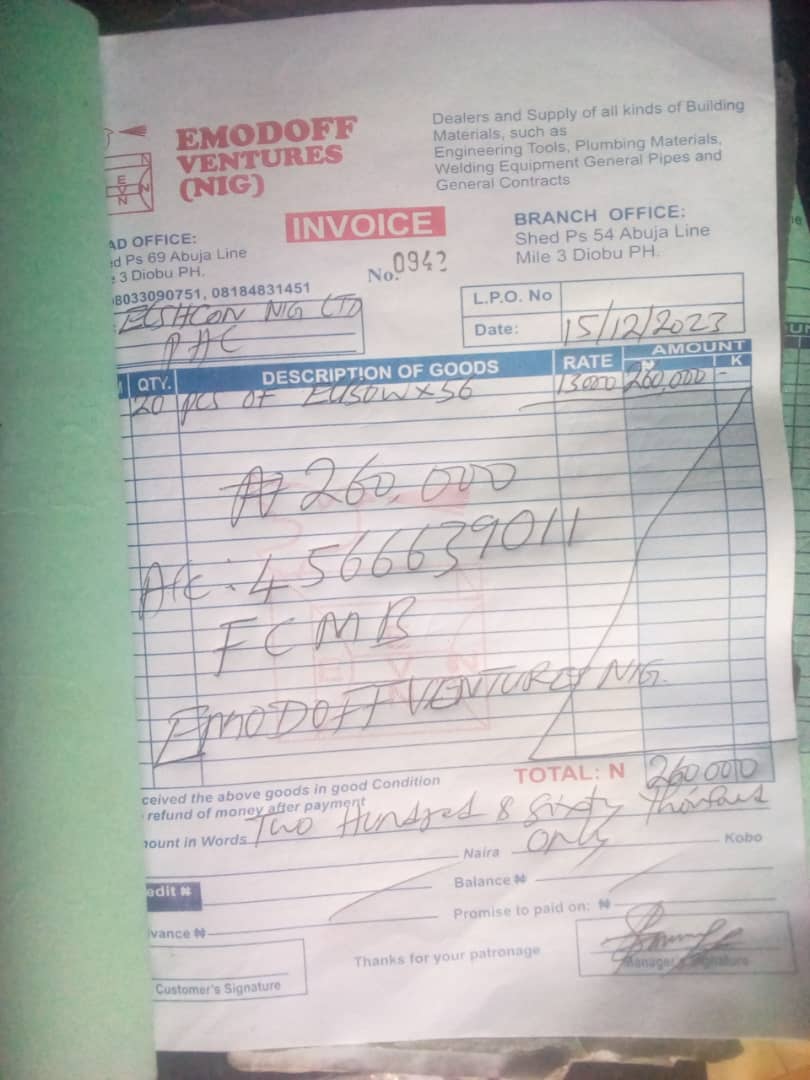 EMODOFF
VENTURES
(NIG)
Dealers and Supply of all kinds of Building
Materials, such as
Engineering Tools, Plumbing Materials,
Welding Equipment General Pipes and
General Contracts
EVN
INVOICE
AD OFFICE:
ed Ps 69 Abuja Line
3 Diobu PH.
8033090751, 08184831451
BRANCH OFFICE:
Shed Ps 54 Abuja Line
Mile 3 Diobu PH.
No. 0942
NIG LTD
PHC
L.P.O. No
Date: 15/12/2023
QTY. DESCRIPTION OF GOODS RATE AMOUNT
N K
20 pcs OF ELBOW x 56 13000 260,000 -
₦ 260,000
A/c: 4566639011
FCMB
EMODOFF VENTURES NIG.
TOTAL: N 260000
ceived the above goods in good Condition
refund of money after payment
ount in Words Two Hundred & Sixty Thousand
Only
Naira Kobo
edit ₦ Balance ₦
vance ₦ Promise to paid on: ₦
Thanks for your patronage
Customer's Signature
Manager's Signature